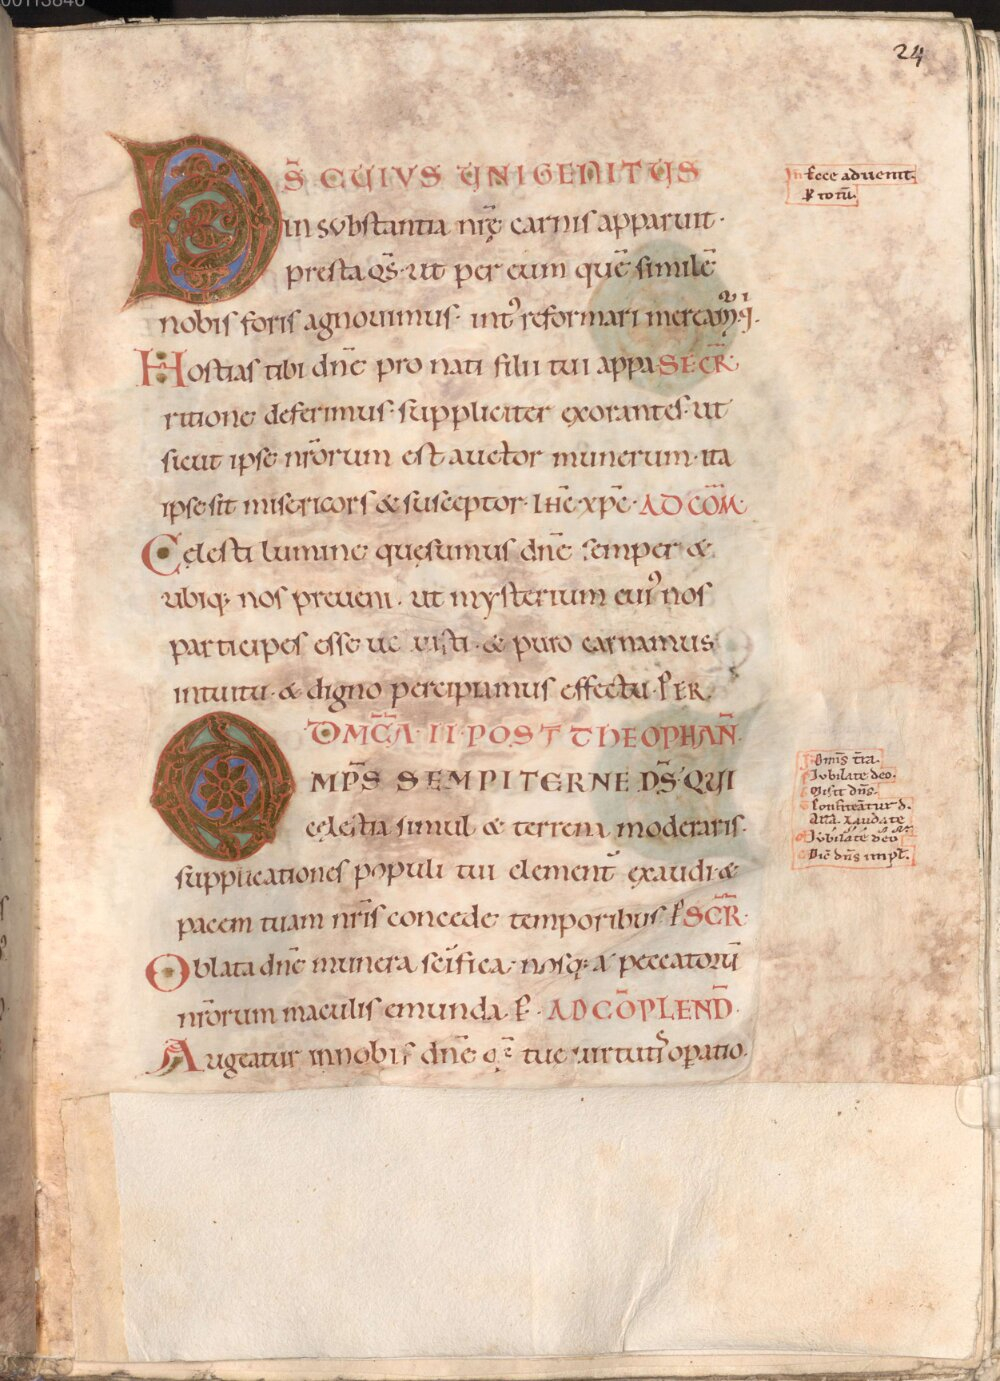 00113846
24
DS̄ CUIUS UNIGENITUS
in substantia nr̄ę carnis apparuit·
presta qs̄· ut per eum quē similē
nobis foris agnouimus· int' reformari meream̄·
Hostias tibi dn̄e pro nati filii tui appa SECR̄
ritione deferimus· suppliciter exorantes· ut
sicut ipse nr̄orum est auctor munerum· ita
ipse sit misericors & susceptor· ihc̄ xpc̄· AD CŌM
Cęlesti lumine quęsumus dn̄e semper &
ubiq; nos preueni· ut mysterium cui' nos
participes esse uo uisti· & puro cernamus
intuitu· & digno percipiamus effectu· PER.
DMC̄A II POST THEOPHAN̄
OMPS̄ SEMPITERNE DS̄ QUI
cęlestia simul & terrena moderaris·
supplicationes populi tui clement̄ exaudi &
pacem tuam nr̄is concede temporibus· P̄ SCR̄
Oblata dn̄e munera sc̄ifica· nosq; a peccatorū
nr̄orum maculis emunda· P̄· AD CŌPLEND̄
Augeatur in nobis dn̄e qs̄ tuę uirtutis operatio·
In Eece aduenit.
P̄ totū.
Omis̄ tr̄a.
Iubilate deo.
Misit dn̄s.
Confiteātur d.
All̄a. Laudate
Iubilate deo
Dic̄ dn̄s impl̄.